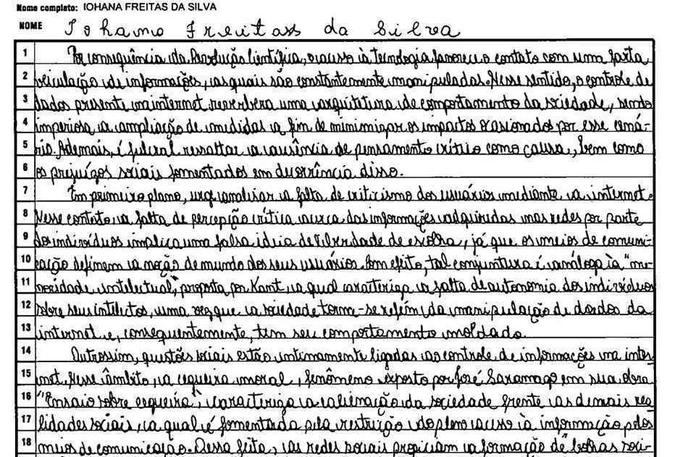 Nome completo: IOHANA FREITAS DA SILVA
NOME Iohana Freitas da Silva
1 Por consequência da Revolução Científica, o acesso à tecnologia favoreceu o contato com uma farta
2 veiculação de informações, as quais são constantemente manipuladas. Nesse sentido, o controle de
3 dados presente na internet reverbera uma arquitetura de comportamento da sociedade, sendo
4 imperiosa a ampliação de medidas a fim de minimizar os impactos ocasionados por esse cená-
5 rio. Ademais, é fulcral ressaltar a ausência de pensamento crítico como causa, bem como
6 os prejuízos sociais fomentados em decorrência disso.
7 Em primeiro plano, urge analisar a falta de criticismo dos usuários mediante a internet.
8 Nesse contato, a falta de percepção crítica acerca das informações adquiridas nas redes por parte
9 dos indivíduos implica uma falsa ideia de liberdade de escolha, já que os meios de comuni-
10 cação definem a noção de mundo dos seus usuários. Com efeito, tal conjuntura é análoga à "me-
11 noridade intelectual", proposta por Kant, a qual caracteriza a falta de autonomia dos indivíduos
12 sobre seus intelectos, uma vez que a sociedade torna-se refém da manipulação de dados da
13 internet e, consequentemente, tem seu comportamento moldado.
14 Outrossim, questões sociais estão intimamente ligadas ao controle de informações na inter-
15 net. Nesse âmbito, a cegueira moral, fenômeno exposto por José Saramago em sua obra
16 "Ensaio sobre cegueira", caracteriza a alienação da sociedade frente as demais rea-
17 lidades sociais, a qual é fomentada pela restrição do pleno acesso à informação pelos
18 meios de comunicação. Dessa feita, as redes sociais propiciam a formação de "bolhas soci-